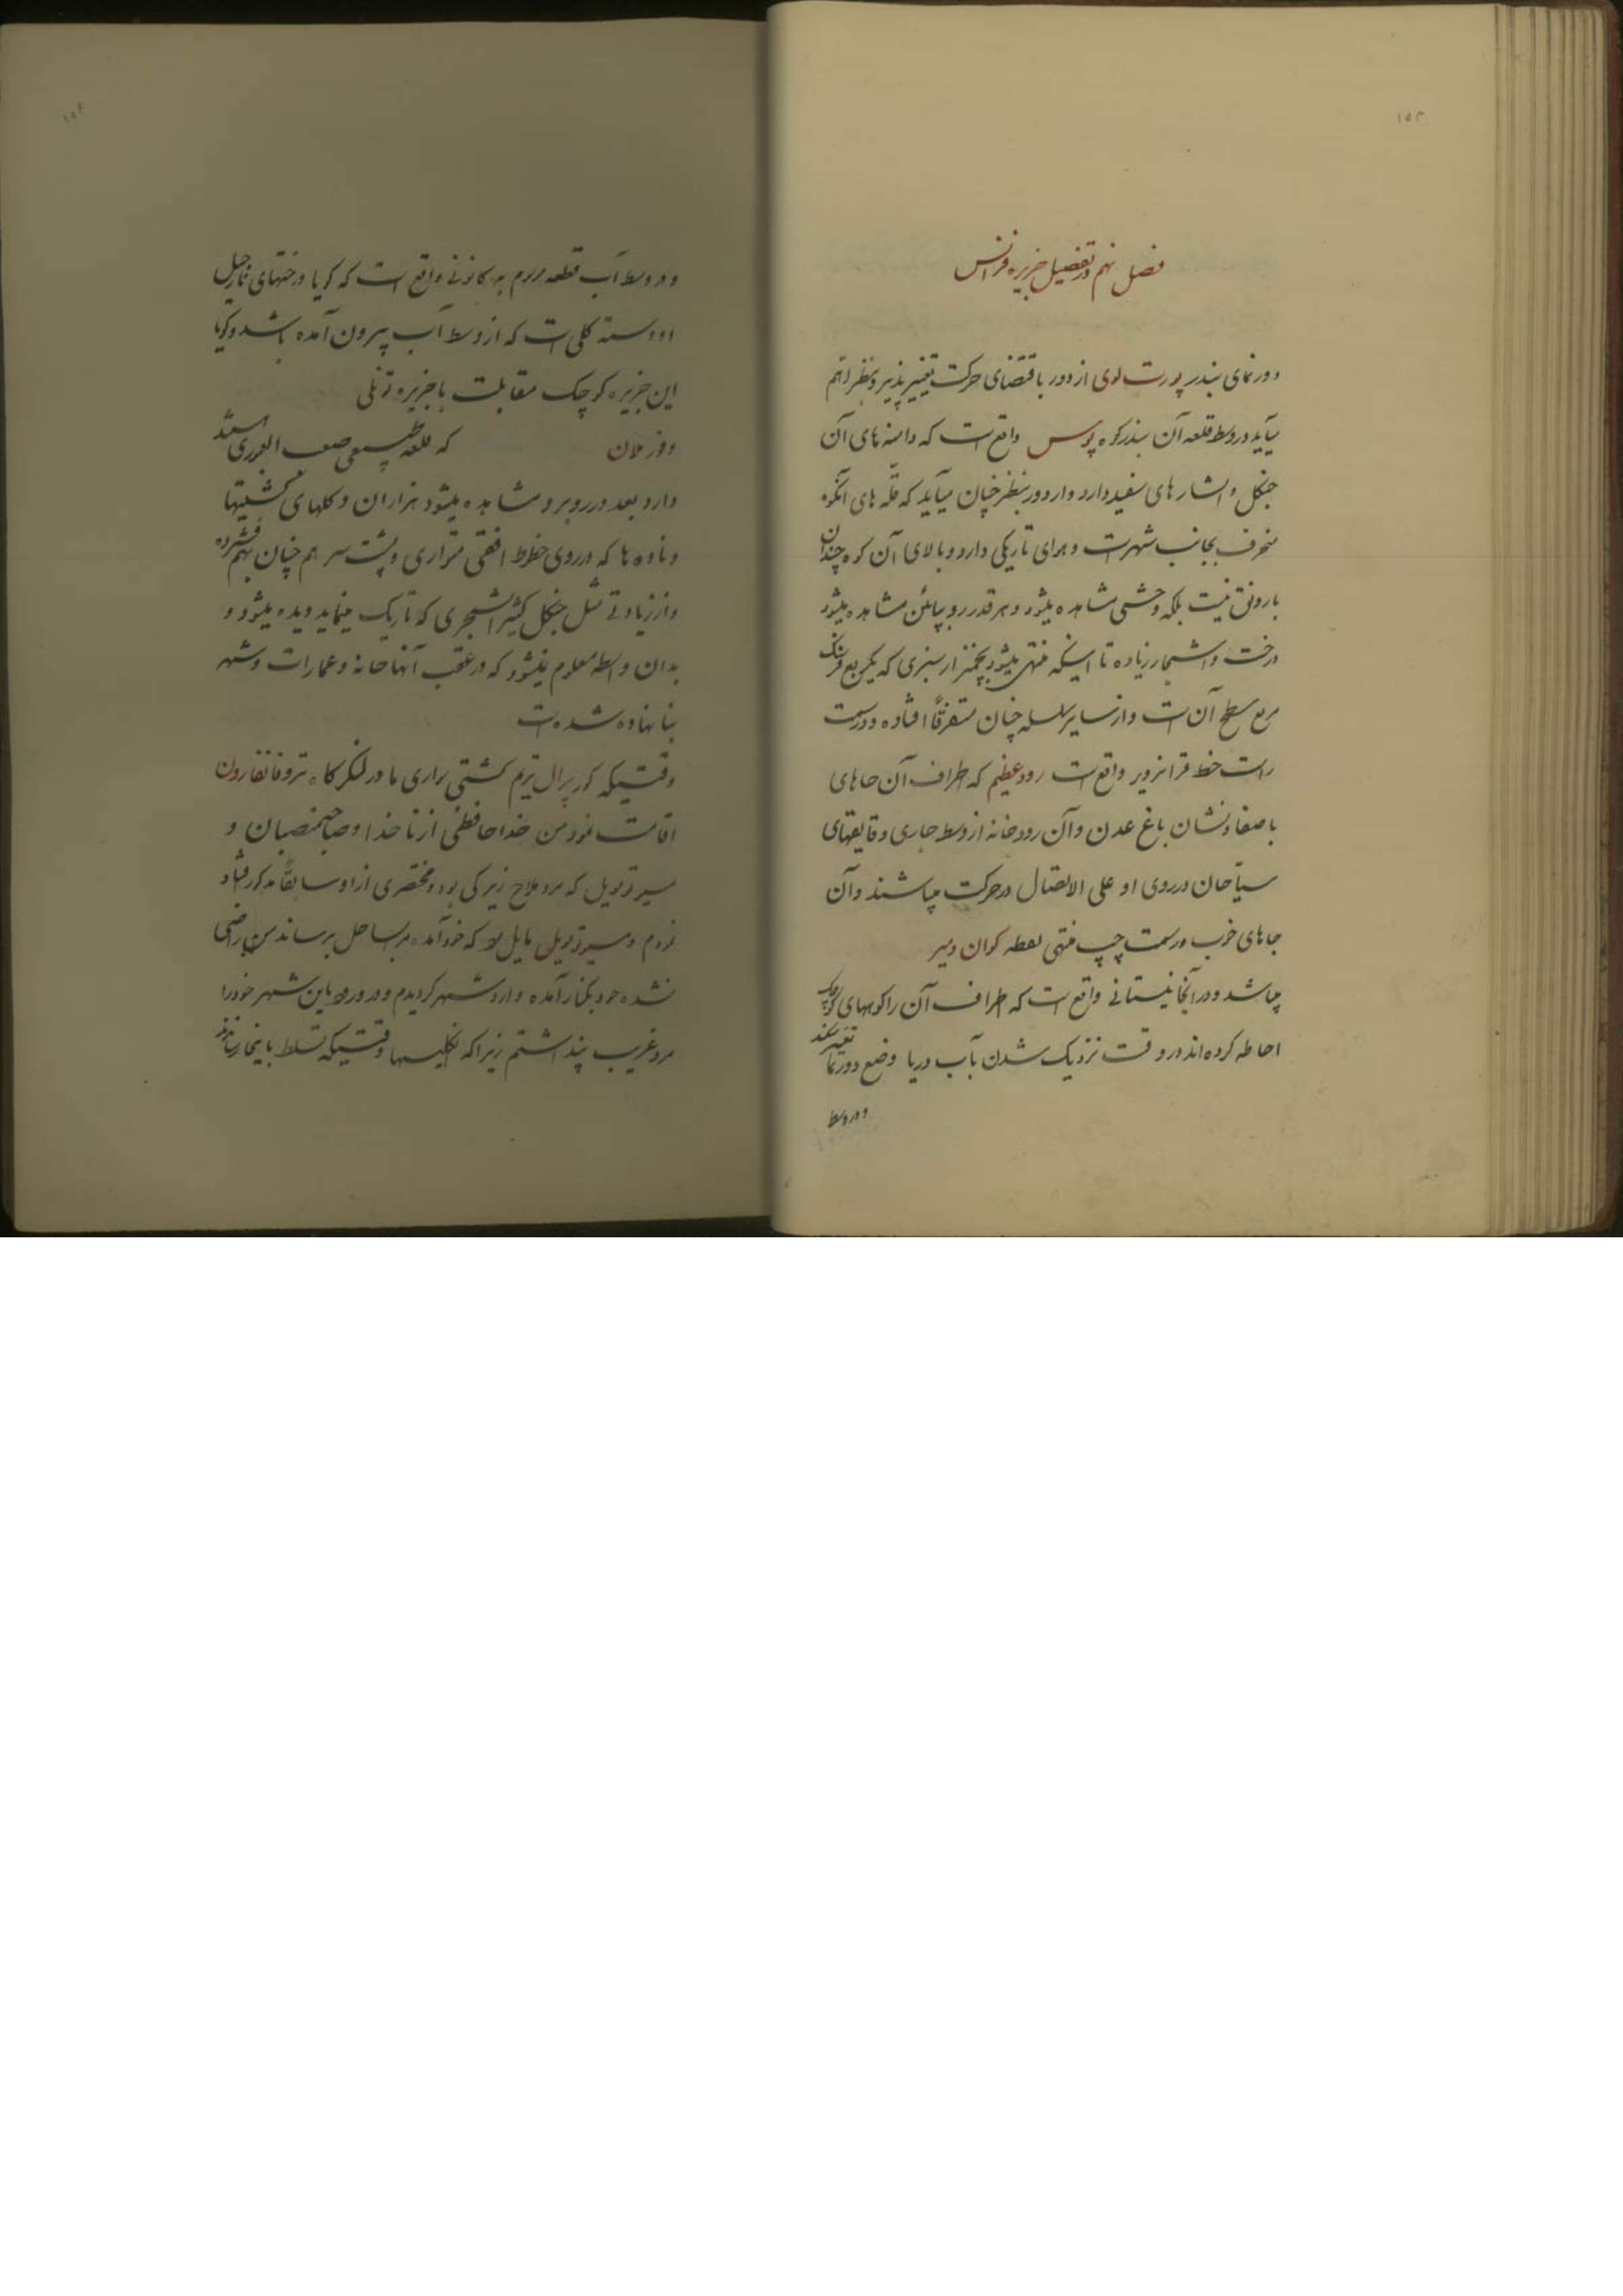 ۱۵۳
فصل نهم در تفصیل جزیره فرانس
دورنمای بندر پورت لوی از دور باقتضای حرکت تغییر پذیر و بنظر اهم
میآید در وسط قلعه آن بندر کوه پوس واقع است که دامنه های آن
جنگل و ابشار های سفید دارد و از دور بنظر چنان میآید که قلّه های آنکوه
منحرف بجانب شهر است و هوای تاریکی دارد و بالای آن کوه چندان
با رونق نیست بلکه وحشی مشاهده میشود و هر قدر رو بپائین مشاهده میشود
درخت و اشجار زیاده تا اینکه منتهی میشود بچمنزار سبزی که یکربع فرسنگ
مربع سطح آن است و از سایر سلسله چنان متفرقاً افتاده و در سمت
راست خط قرانزویر واقع است رود عظیم که اطراف آن جاهای
با صفا و نشان باغ عدن و آن رودخانه از وسط جاری و قایقهای
سیّاحان در روی او علی الاتصال در حرکت میباشند و آن
جاهای خوب در سمت چپ منتهی بنقطه کوان ومیر
میباشد و در آنجا نیستانی واقع است که اطراف آن را کوههای کوچک
احاطه کرده اند در وقت نزدیک شدن بآب دریا وضع دورنما تغییر میکند
و در وسط
۱۵۴
و در وسط آب قطعه موسوم به کانونی واقع است که گویا درختهای نارجیل
او دسته گلی است که از وسط آب بیرون آمده باشد و گویا
این جزیره کوچک مقابلت با جزیره تونلی
و فور بلان که قلعه طبیعی صعب العبوری است
دارد بعد در روبرو مشاهده میشود هزاران دکلهای کشتیها
و ناوه ها که در روی خطوط افقی متوازی و پشت سر هم چنان بهم فشرده
و از زیادتی مثل جنگل کثیر الشجری که تاریک مینماید دیده میشود و
بدان واسطه معلوم نمیشود که در عقب آنها خانه و عمارات و شهر
بنا نهاده شده است
وقتیکه کورپرال تریم کشتی سواری ما در لنگرگاه تروفانفارون
اقامت نمود من خداحافظی از ناخدا و صاحبمنصبان و
مسیو ترویل که مرد ملاح زیرکی بود و مختصری از او سابقاً مذکور افتاد
نمودم و مسیو ترویل مایل بود که خود آمده مرا بساحل برساند من راضی
نشده خود بکنار آمده وارد شهر گردیدم و در ورود باین شهر خود را
مرد غریب پنداشتم زیرا که انگلیسها وقتیکه تسلط باینجا رساندند